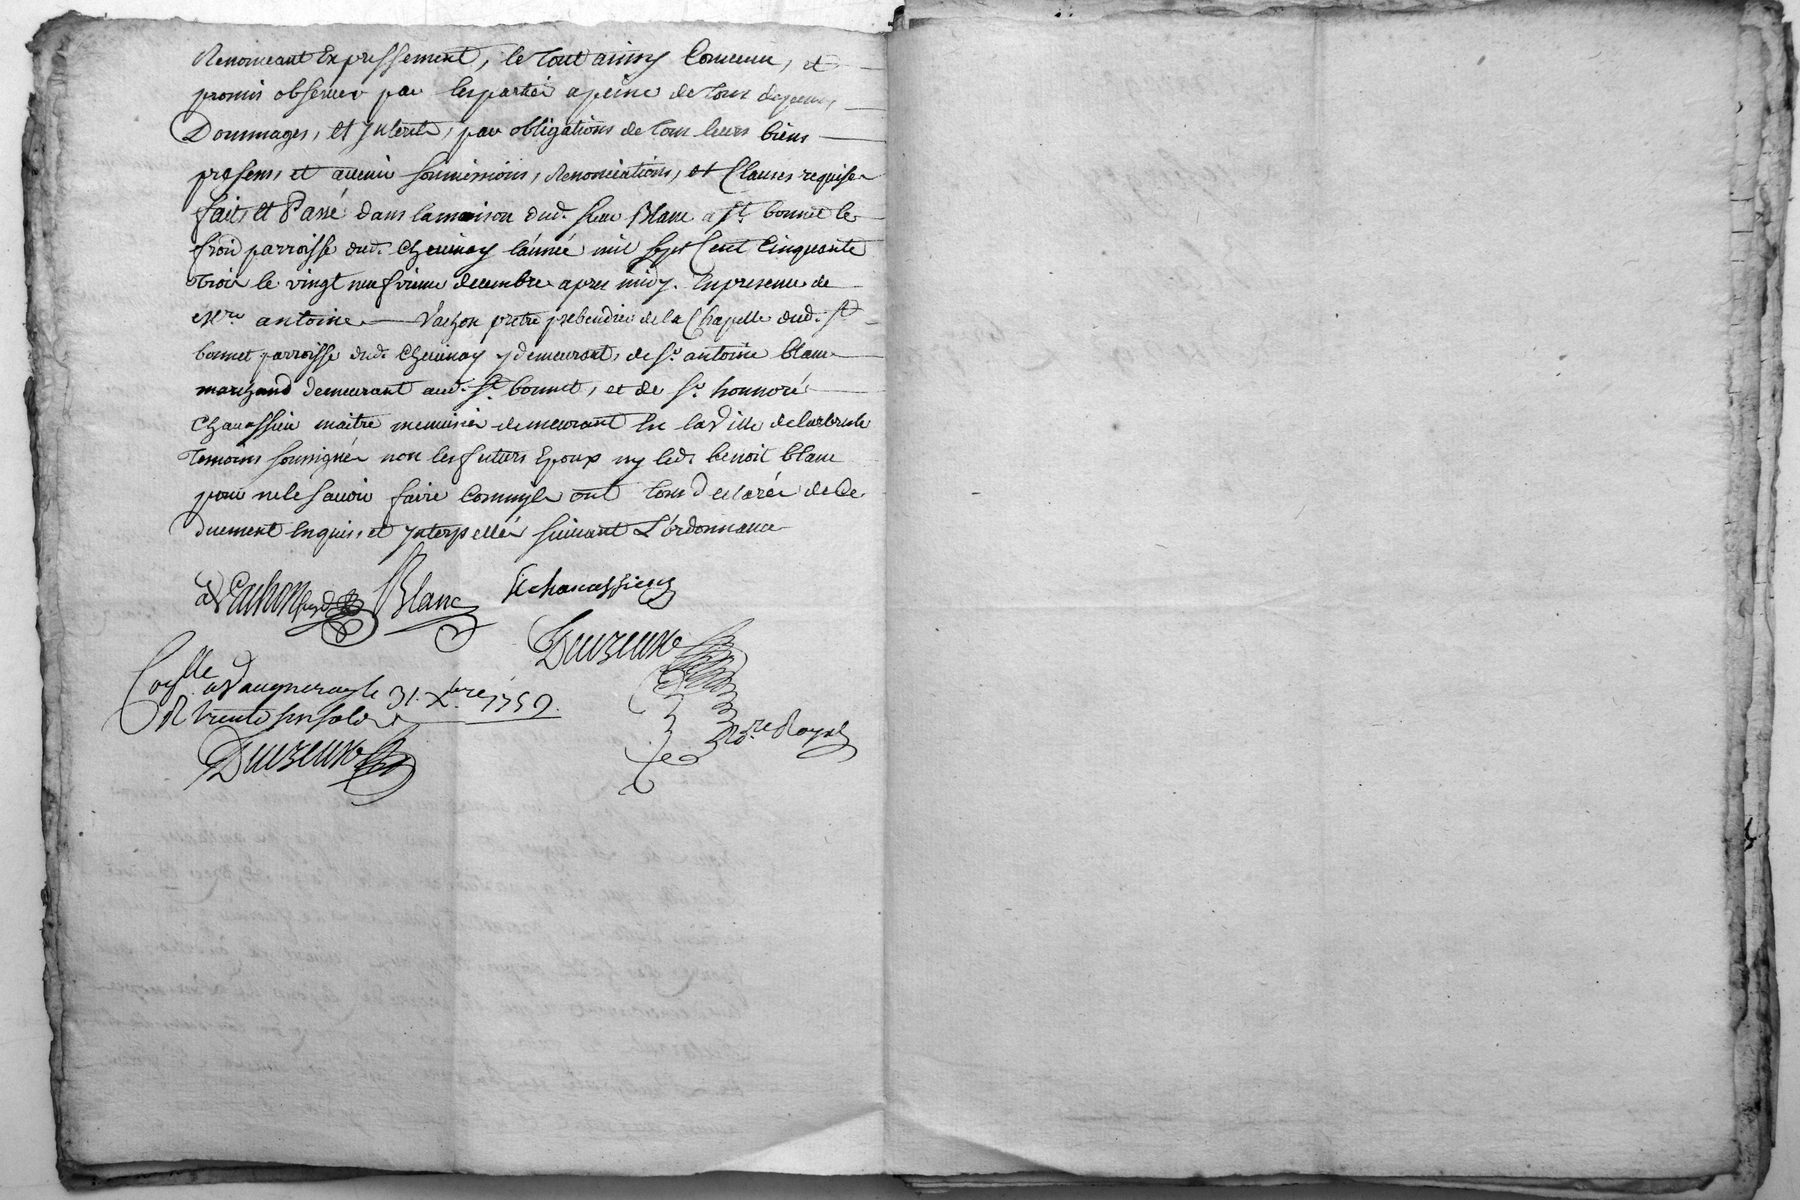 Renonceant Expressement, le tout ainsy Convenu, et
promis observer par les parties a peine de tous depens,
Dommages, et Interets, par obligations de tous leurs biens
presens, et avenir soumissions, Renonciations, et Clauses requises
fait, et Passé dans la maison dud. sieur Blanc a St. bonnet le
froid parroisse dud. Chevinay l'année mil sept Cent Cinquante
trois le vingt neufvieme decembre apres midy. En presence de
Mre. antoine Vachon pretre prebendier de la Chapelle dud. St
bonnet parroisse dud. Chevinay y demeurant, de Sr. antoine blanc
marchand demeurant aud. St. bonnet, et de Sr. honnoré
Chanassieu maitre menuisier demeurant En la Ville de Larbresle
temoins soussignés non les futurs Epoux ny led. benoit blanc
pour ne le sçavoir faire Comm'ils ont tous declaré de Ce
duement Enquis, et Interpellés suivant L'ordonnance
a Vachon Blanc hchanassieu
Duvzeune
Con.lle a Vaugneray le 31. Xbre.
R trente six sols
Duvzeune
No.re Royal